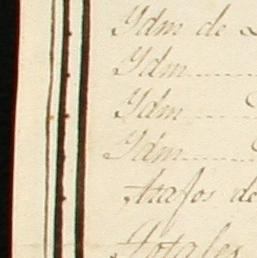 Ydm de
Ydm
Ydm
Ydm
trafos de
Totales